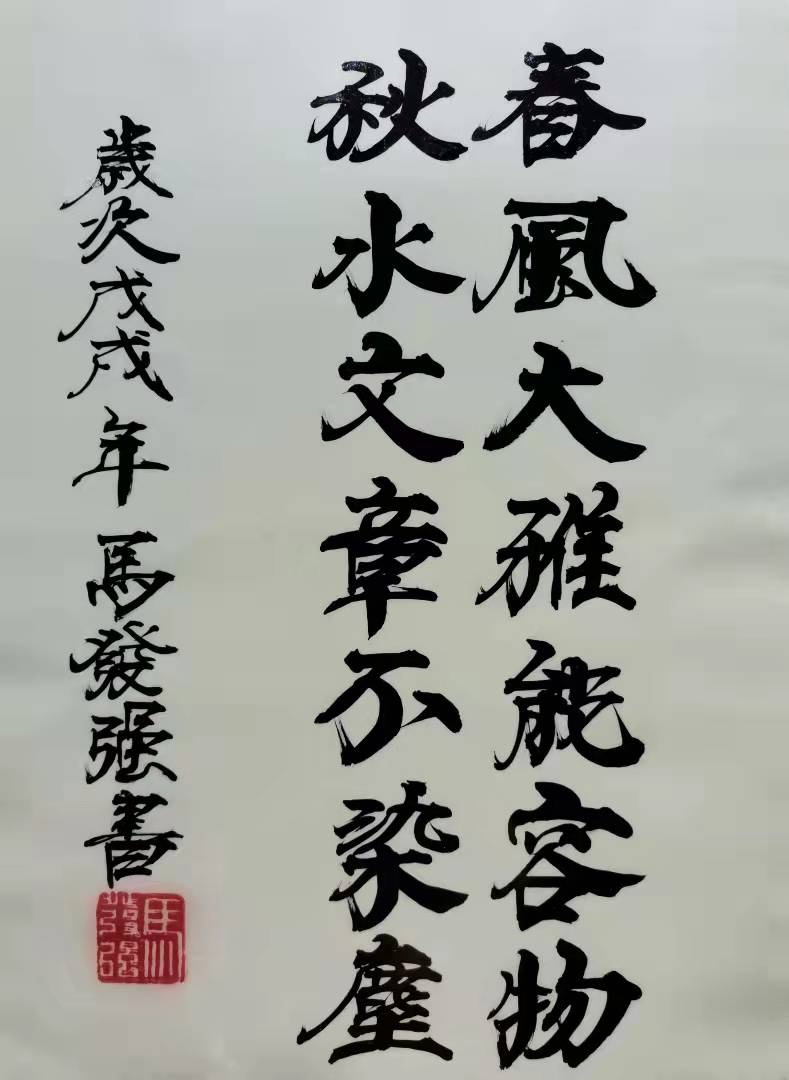 春風大雅能容物
秋水文章不染塵
歲次戊戌年 馬發强書
馬發强